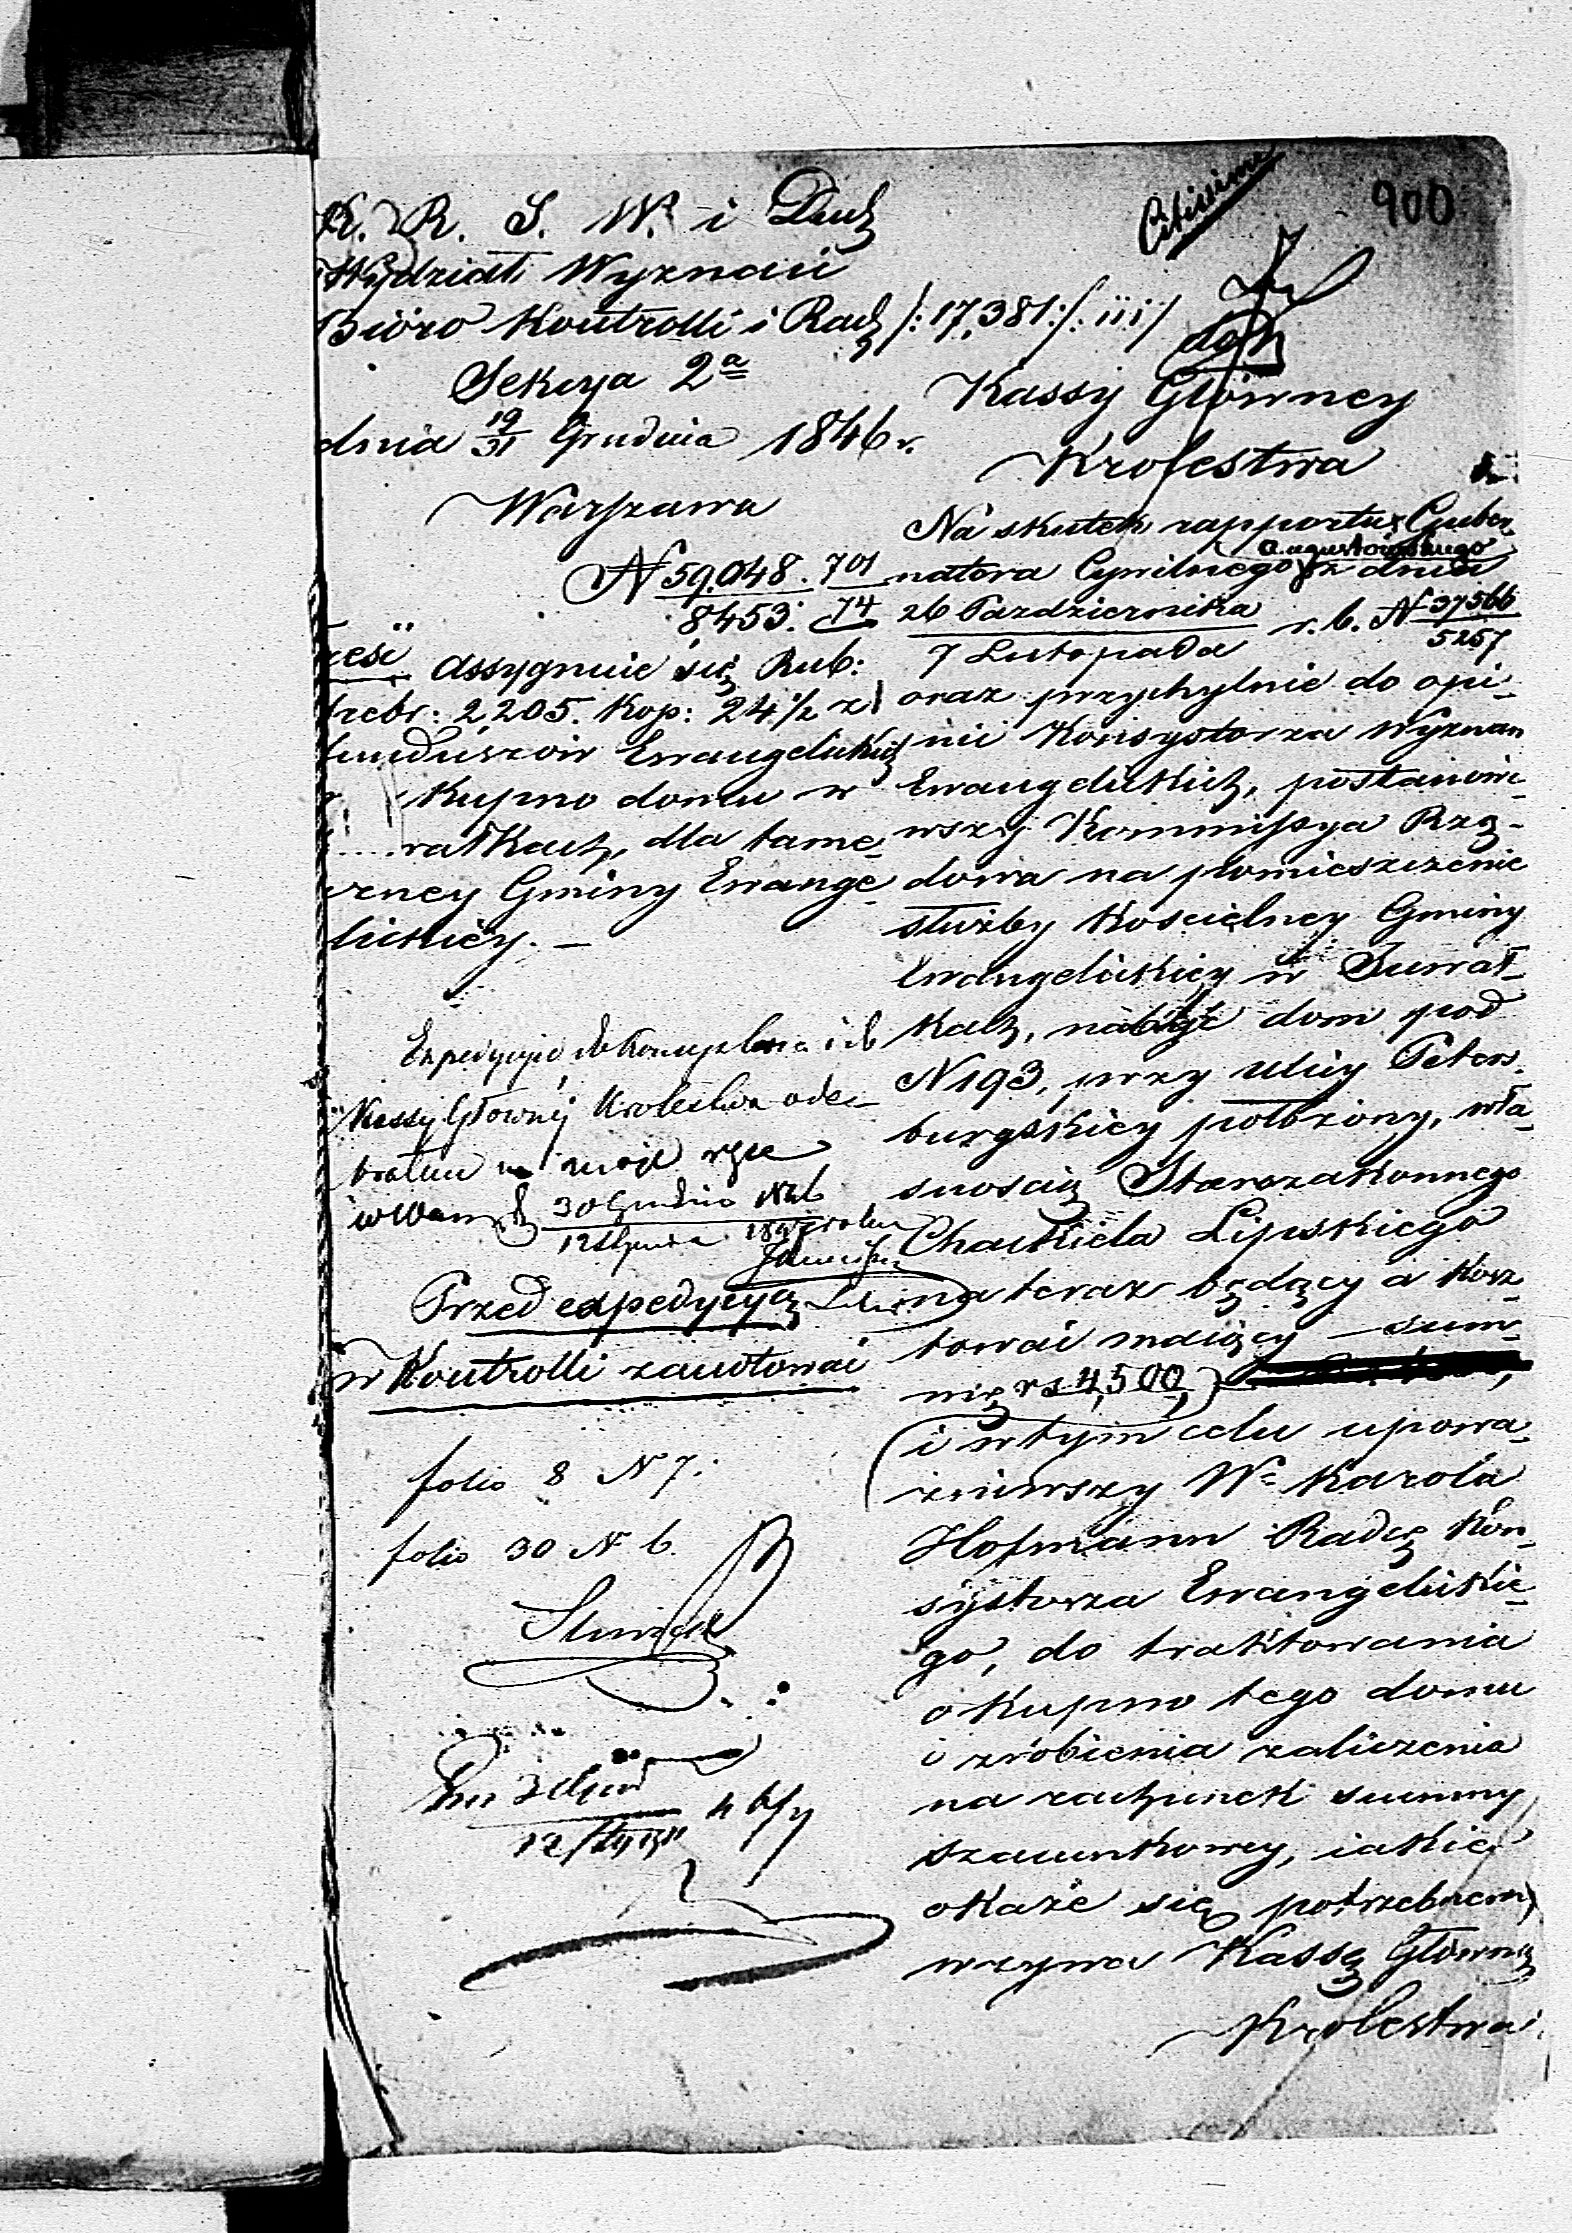 Citissime
900
K. R. S. W. i Duch
Wydział Wyznań
Bióro Kontrolli i Rach /: 17,381 :/
Sekcya 2a
dnia 19/31 Grudnia 1846 r.
Warszawa
N 59.048. 701
8453. 74
reść Assygnuie się Rub:
srebr: 2205. Kop: 24 1/2 z
funduszów Ewangelickich
Kupno domu w
wałkach, dla tame
czney Gminy Ewange
lickiéy. —
Expedycyie do Konsystorza i do
Kassy Głownéy Krolestwa ode-
brałem na moje ręce
w Warsz 30 Grudnia 1846
12 Stycznia 1847 roku
Przed expedycyą
w Kontrolli zanotować
folio 8 N 7.
folio 30 N 6.
do
Kassy Główney
Królestwa
Na skutek rapportu Guber-
natora Cywilnego Augustowskiego z dnia
26 Pazdziernika
7 Listopada r. b. N 37566
5257
oraz przychylnie do opi-
nii Konsystorza Wyznan
Ewangelickich, postanowi-
wszy Kommissya Rzą-
dowa na pomieszczenie
służby Kościelney Gminy
Ewangelickiey w Suwał-
kach, nabyć dom pod
N 193, przy ulicy Peters-
burgskiey położony, wła-
snością Starozakonnego
Chackiela Lipskiego
na teraz będący a kosz-
tować maiący — sum-
mę rs 4,500,
i w tym celu upowa-
żniwszy Wo Karola
Hofmann Radcę Kon-
systorza Ewangelickie-
go, do traktowania
o kupno tego domu
i zrobienia zaliczenia
na rachunek summy
szacunkowey, iakie
okaże się potrzebnem,
wzywa Kassę Główną
Krolestwa